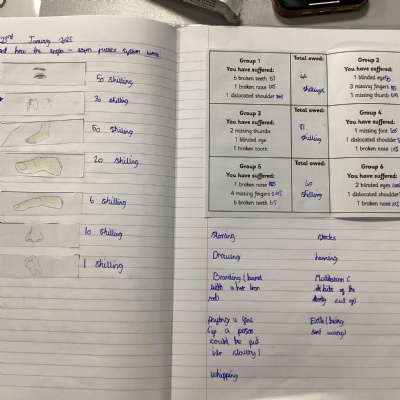 23rd January 2025
how the anglo - saxon justice system
50 shilling
30 shilling
50 shilling
20 shilling
6 shilling
10 shilling
1 shilling
Group 1
You have suffered:
6 broken teeth
1 broken nose
1 dislocated shoulder
Total owed:
shillings
Group 2
You have suffered:
1 blinded eye
3 missing fingers
1 missing thumb
Group 3
You have suffered:
2 missing thumbs
1 blinded eye
1 broken tooth
Total owed:
shilling
Group 4
You have suffered:
1 missing foot
1 dislocated shoulder
1 broken nose
Group 5
You have suffered:
1 broken nose
4 missing fingers
6 broken teeth
Total owed:
60
shilling
Group 6
You have suffered:
2 blinded eyes
1 dislocated shoulder
1 broken nose
Stoning
Drowing
Branding (burnt
with a hot iron
rod)
paying a fine
(if a person
could be put
into slavery)
whipping
stocks
hanning
Mutilation (
bits of the
body cut off)
Exile (being
sent away)